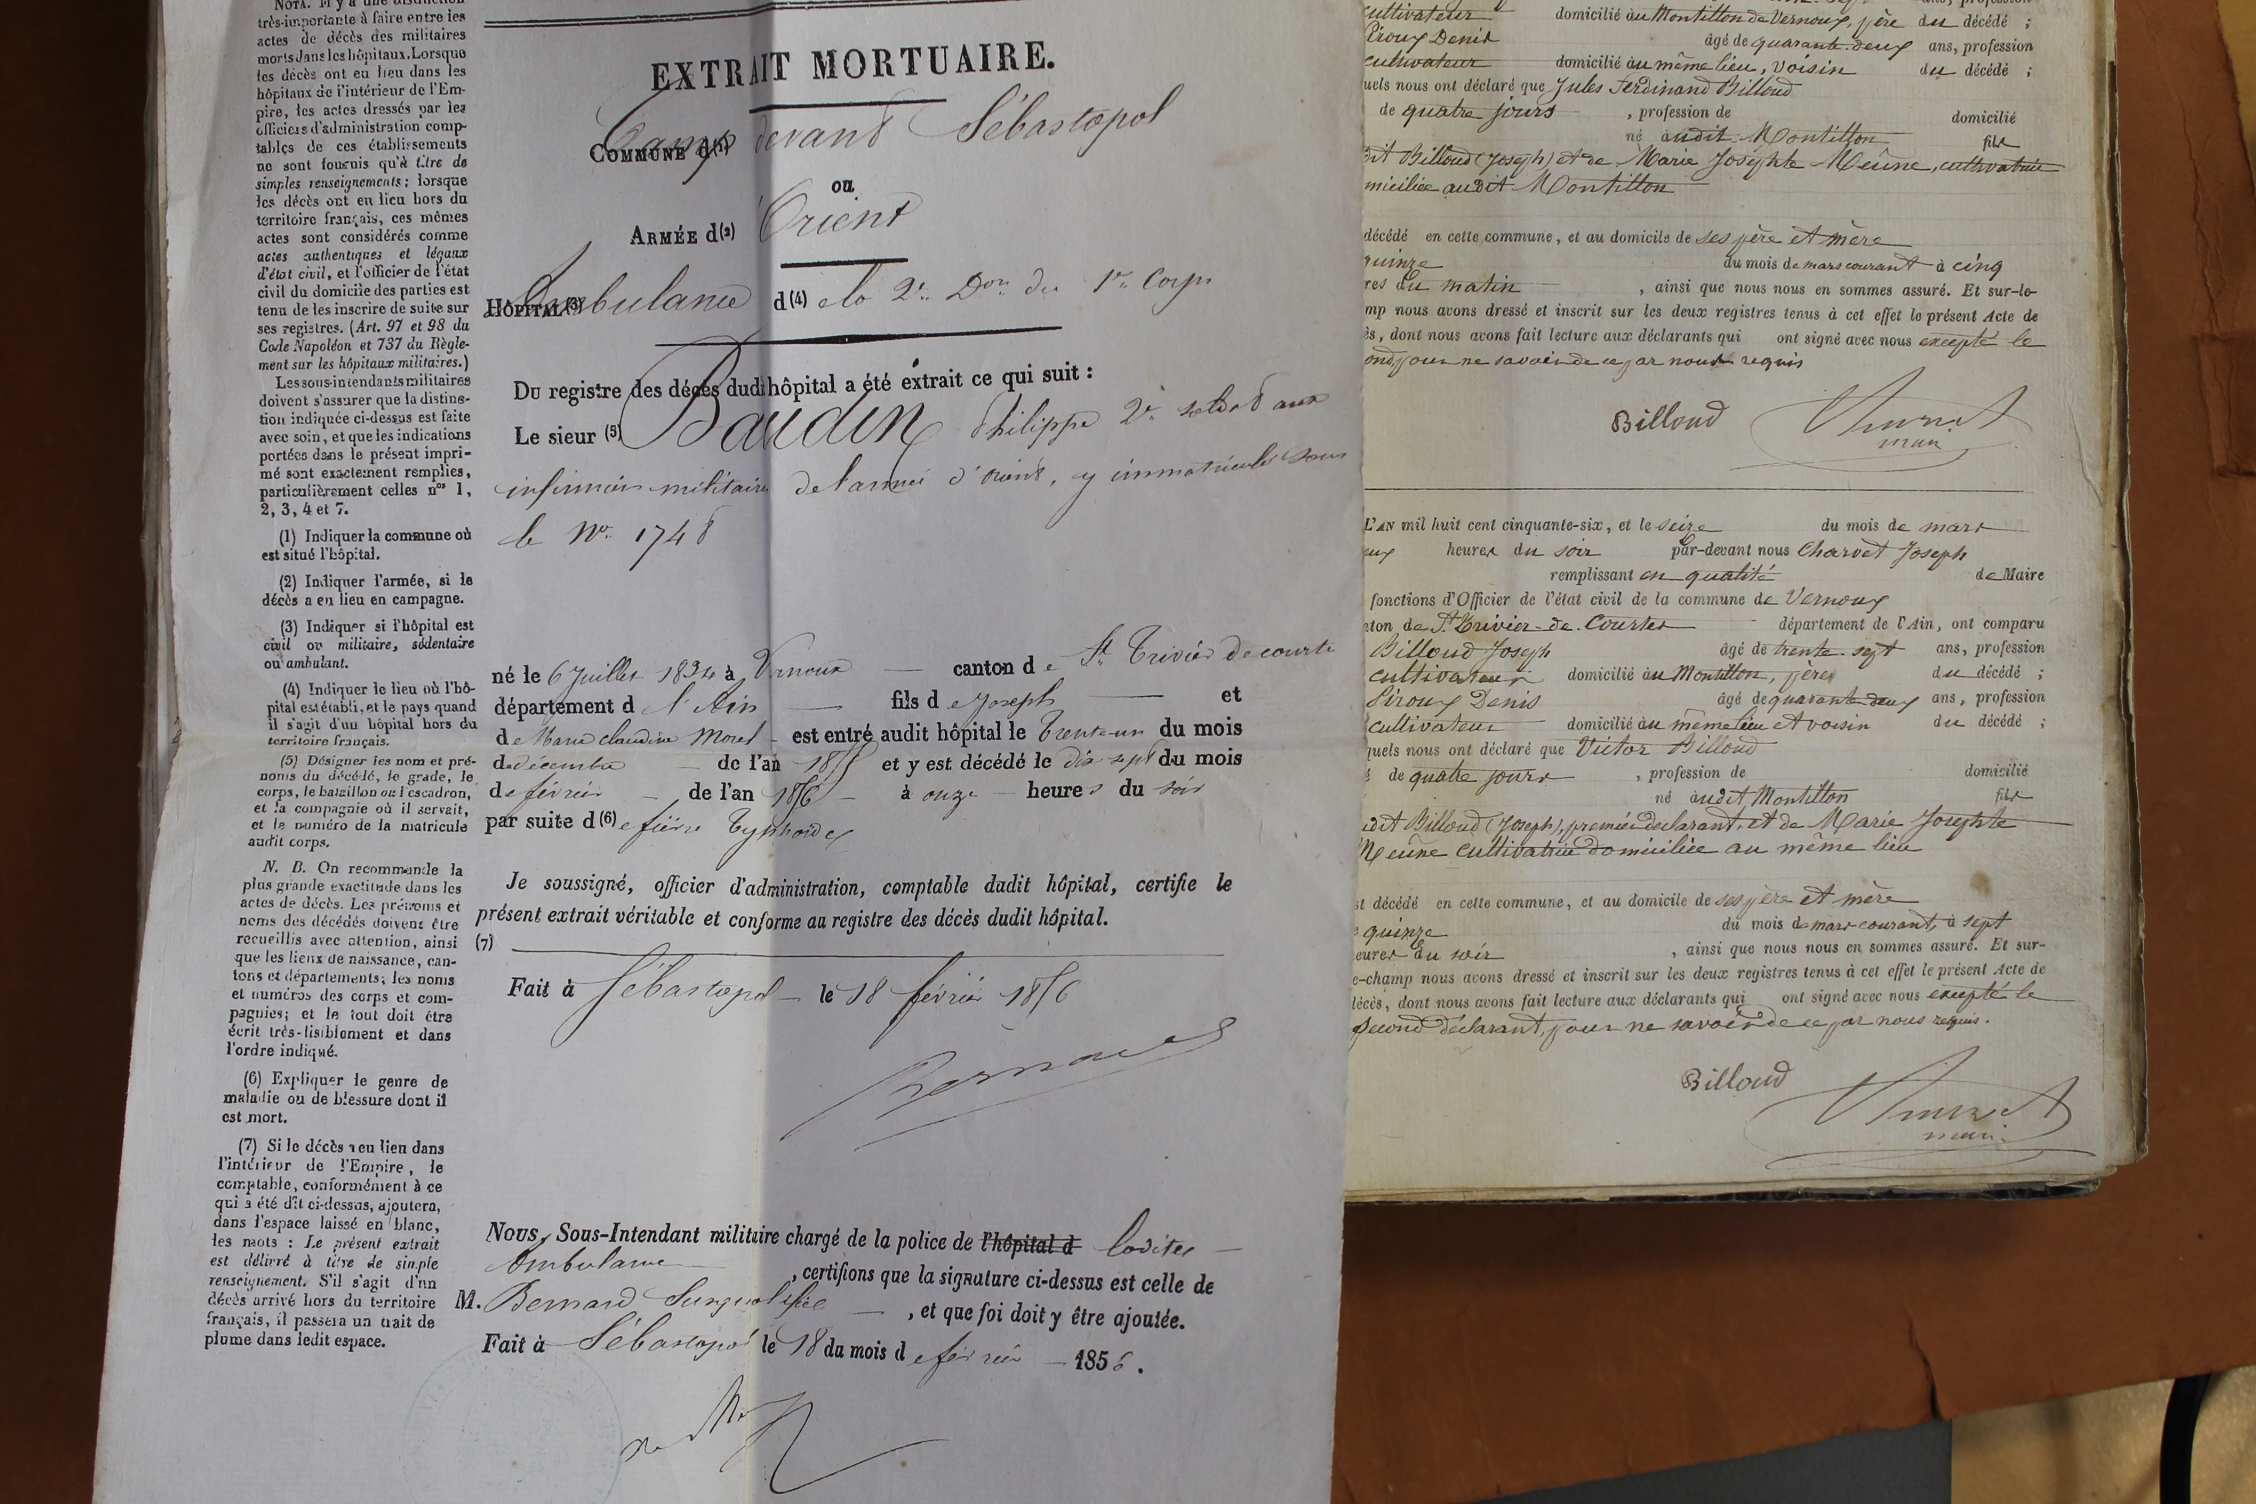 NOTA. Il y a une distinction
très-importante à faire entre les
actes de décès des militaires
morts dans les hôpitaux. Lorsque
les décès ont eu lieu dans les
hôpitaux de l'intérieur de l'Em-
pire, les actes dressés par les
officiers d'administration comp-
tables de ces établissements
ne sont fournis qu'à titre de
simples renseignements; lorsque
les décès ont eu lieu hors du
territoire français, ces mêmes
actes sont considérés comme
actes authentiques et légaux
d'état civil, et l'officier de l'état
civil du domicile des parties est
tenu de les inscrire de suite sur
ses registres. (Art. 97 et 98 du
Code Napoléon et 737 du Règle-
ment sur les hôpitaux militaires.)
Les sous-intendants militaires
doivent s'assurer que la distinc-
tion indiquée ci-dessus est faite
avec soin, et que les indications
portées dans le présent impri-
mé sont exactement remplies,
particulièrement celles nos 1,
2, 3, 4 et 7.
(1) Indiquer la commune où
est situé l'hôpital.
(2) Indiquer l'armée, si le
décès a eu lieu en campagne.
(3) Indiquer si l'hôpital est
civil ou militaire, sédentaire
ou ambulant.
(4) Indiquer le lieu où l'hô-
pital est établi, et le pays quand
il s'agit d'un hôpital hors du
territoire français.
(5) Désigner les nom et pré-
noms du décédé, le grade, le
corps, le bataillon ou l'escadron,
et la compagnie où il servait,
et le numéro de la matricule
audit corps.
N. B. On recommande la
plus grande exactitude dans les
actes de décès. Les prénoms et
noms des décédés doivent être
recueillis avec attention, ainsi
que les lieux de naissance, can-
tons et départements; les noms
et numéros des corps et com-
pagnies; et le tout doit être
écrit très-lisiblement et dans
l'ordre indiqué.
(6) Expliquer le genre de
maladie ou de blessure dont il
est mort.
(7) Si le décès a eu lieu dans
l'intérieur de l'Empire, le
comptable, conformément à ce
qui a été dit ci-dessus, ajoutera,
dans l'espace laissé en blanc,
les mots : Le présent extrait
est délivré à titre de simple
renseignement. S'il s'agit d'un
décès arrivé hors du territoire
français, il passera un trait de
plume dans ledit espace.
EXTRAIT MORTUAIRE.
COMMUNE d(1) Camp devant Sébastopol
ou
ARMÉE d(2) Orient
HÔPITAL(3) Ambulance d(4) e la 2e Don du 1er Corps
Du registre des décès dudit hôpital a été extrait ce qui suit :
Le sieur (5) Baudin Philippe 2e soldat aux
infirmiers militaires de l'armée d'orient, y immatriculé sous
le No 1748
né le 6 Juillet 1834 à Vernoux canton d e St Trivier de courte
département d e l'Ain fils d e Joseph et
d e Marie claudine Morel est entré audit hôpital le trente un du mois
d e décembre de l'an 1855 et y est décédé le dix sept du mois
d e février de l'an 1856 à onze heures du soir
par suite d(6) e fièvre Typhoïde
Je soussigné, officier d'administration, comptable dudit hôpital, certifie le
présent extrait véritable et conforme au registre des décès dudit hôpital.
(7)
Fait à Sébastopol le 18 février 1856
Bernard
Nous, Sous-Intendant militaire chargé de la police de l'hôpital d ladite
Ambulance , certifions que la signature ci-dessus est celle de
M. Bernard , et que foi doit y être ajoutée.
Fait à Sébastopol le 18 du mois d e février 1856.
cultivateur domicilié au Montillon de Vernoux, père du décédé ;
Piroux Denis âgé de quarante-deux ans, profession
cultivateur domicilié au même lieu, voisin du décédé ;
quels nous ont déclaré que Jules Ferdinand Billoud
de quatre jours , profession de domicilié
né audit Montillon fils
dit Billoud (Joseph) et de Marie Josephte Meûne, cultivatrice
miciliée audit Montillon
décédé en cette commune, et au domicile de ses père et mère
quinze du mois de mars courant à cinq
res du matin , ainsi que nous nous en sommes assuré. Et sur-le-
mp nous avons dressé et inscrit sur les deux registres tenus à cet effet le présent Acte de
ès, dont nous avons fait lecture aux déclarants qui ont signé avec nous excepté le
ond, pour ne savoir de ce par nous requis
Billoud
maire
L'AN mil huit cent cinquante-six, et le seize du mois de mars
eux heures du soir par-devant nous Charvet Joseph
remplissant en qualité de Maire
fonctions d'Officier de l'état civil de la commune de Vernoux
ton de St Trivier-de-Courtes département de l'Ain, ont comparu
Billoud Joseph âgé de trente-sept ans, profession
cultivateur domicilié au Montillon, père du décédé ;
Piroux Denis âgé de quarante deux ans, profession
cultivateur domicilié au même lieu et voisin du décédé ;
quels nous ont déclaré que Victor Billoud
de quatre jours , profession de domicilié
né audit Montillon fils
udit Billoud (Joseph), premier déclarant, et de Marie Josephte
Meûne cultivatrice domiciliée au même lieu
st décédé en cette commune, et au domicile de ses père et mère
quinze du mois de mars courant, à sept
eures du soir , ainsi que nous nous en sommes assuré. Et sur-
e-champ nous avons dressé et inscrit sur les deux registres tenus à cet effet le présent Acte de
décès, dont nous avons fait lecture aux déclarants qui ont signé avec nous excepté le
second déclarant, pour ne savoir de ce par nous requis.
Billoud
maire